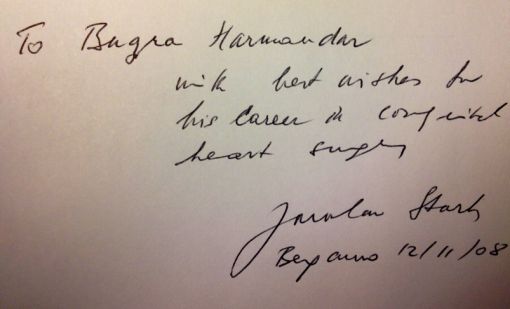 To Bugra Harmandar
with best wishes for
his career in congenital
heart surgery
Jaroslav Stark
Bergamo 12/11/08